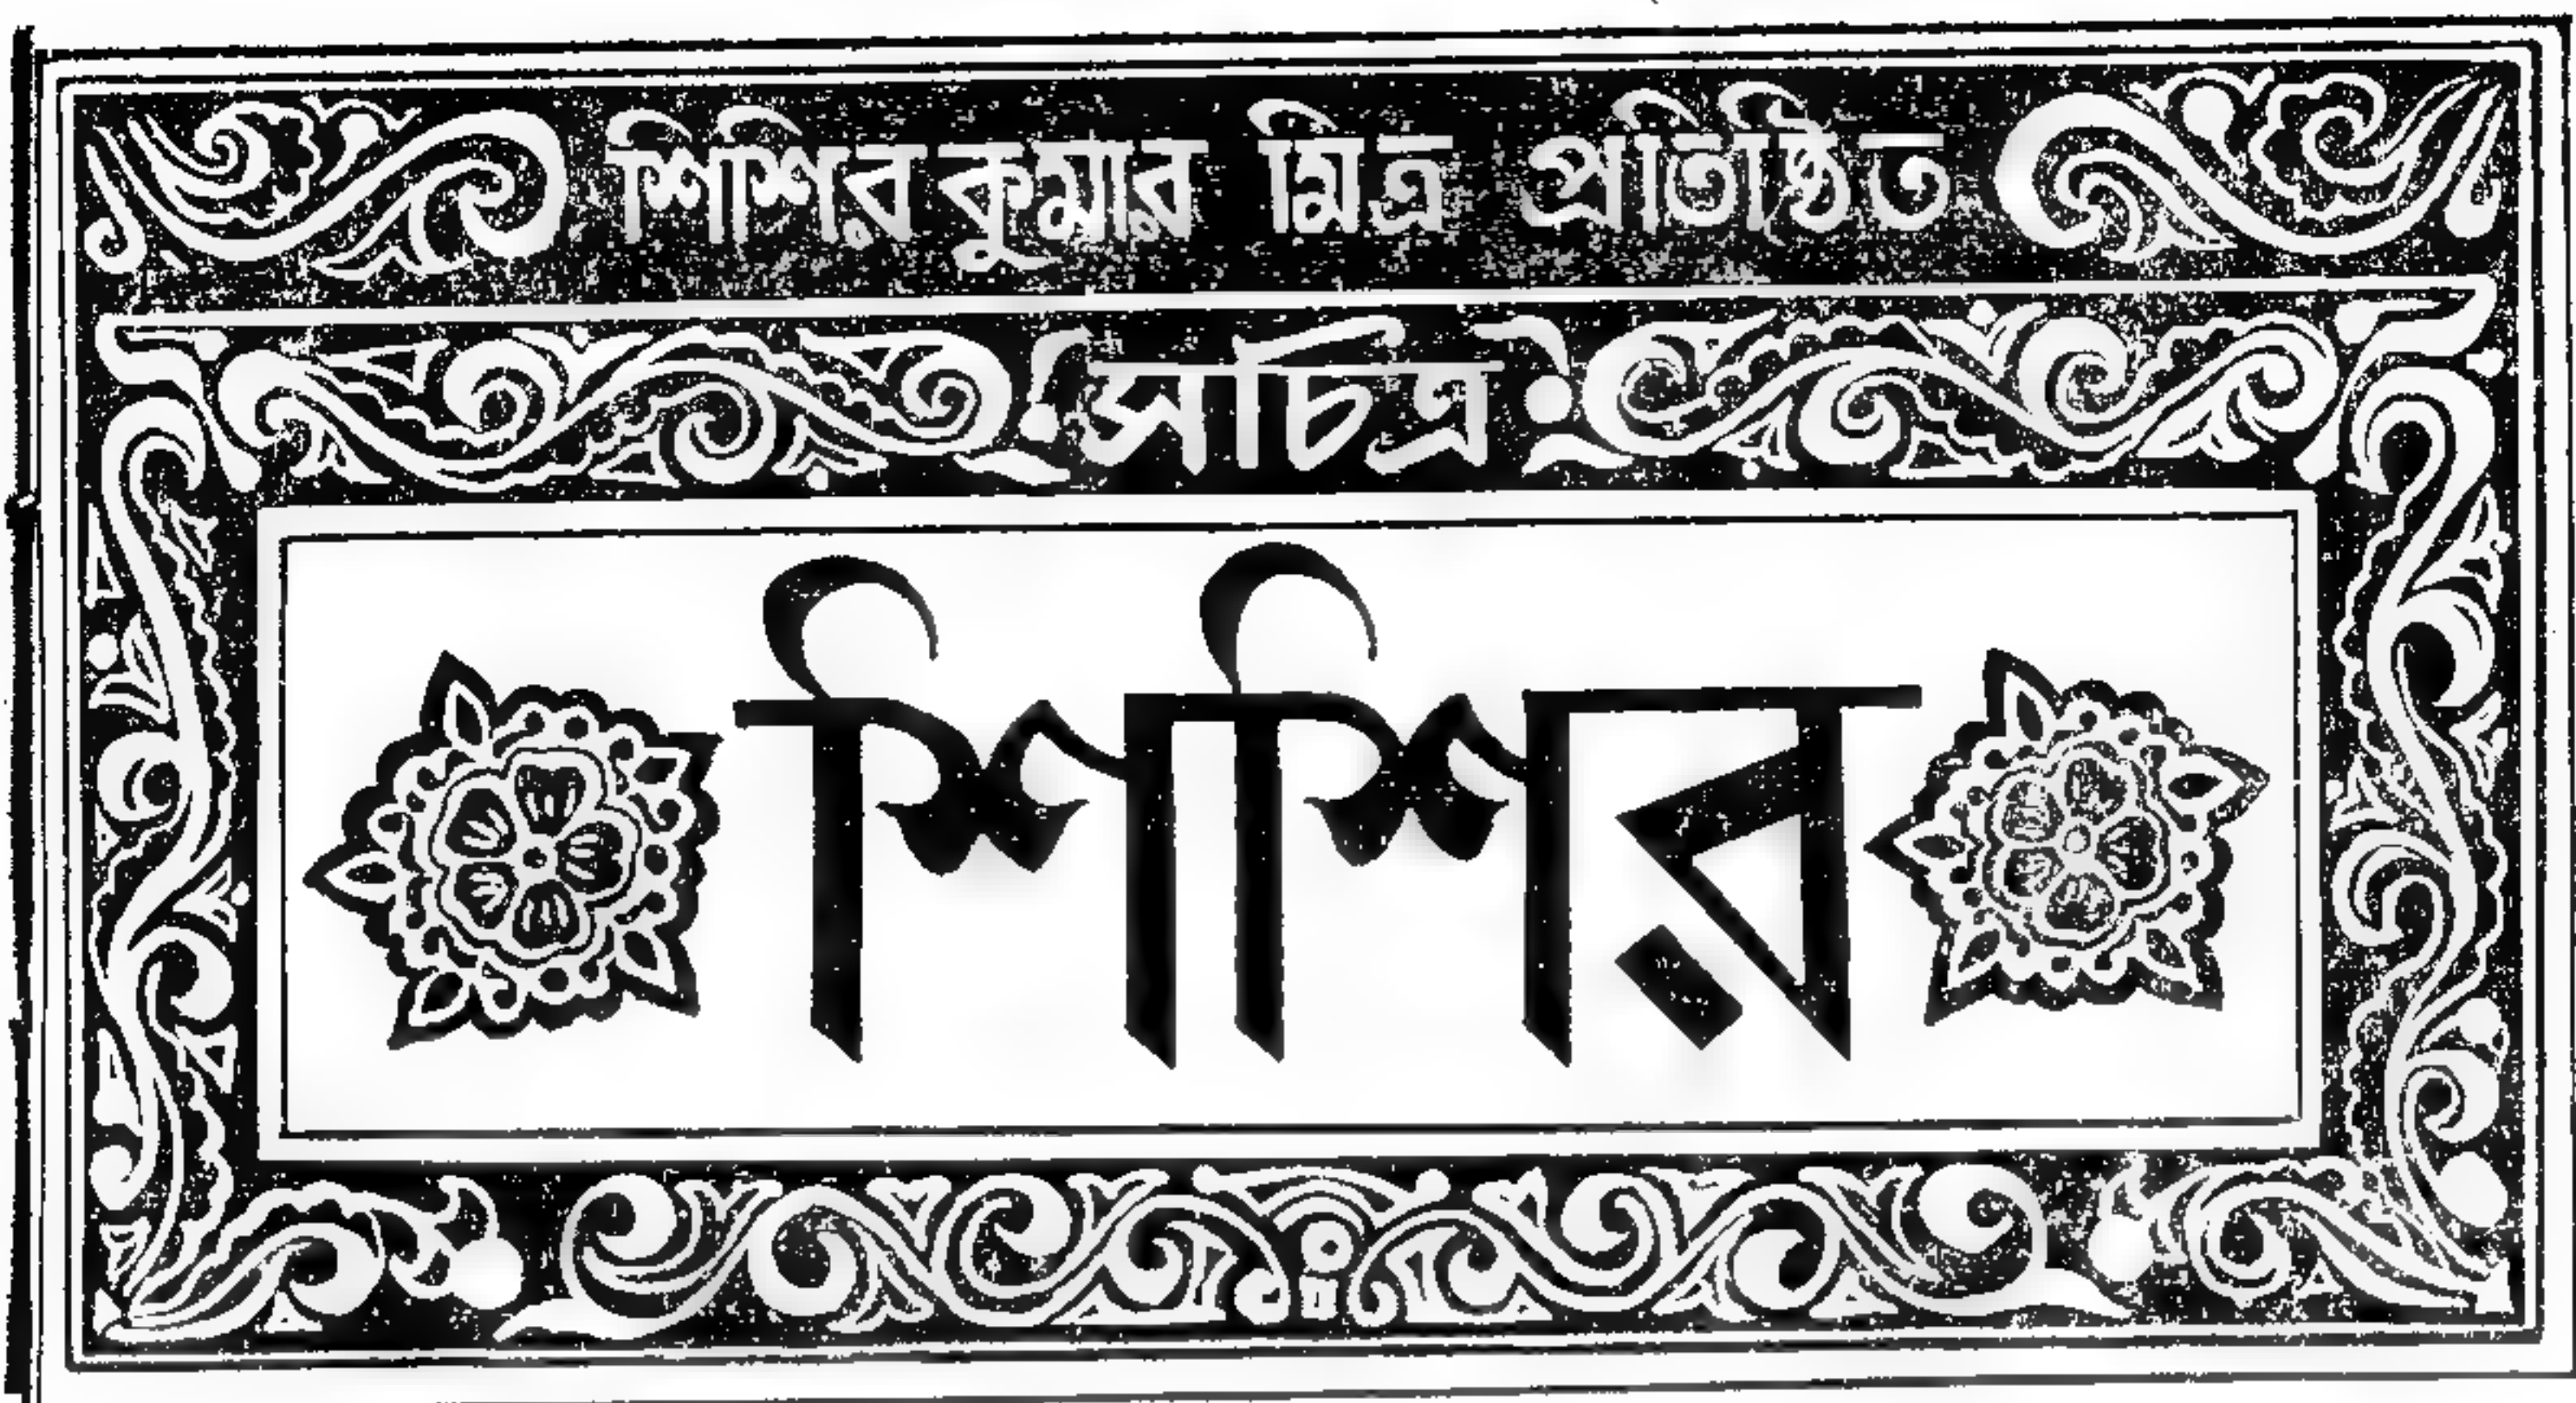 শিশিরকুমার মিত্র প্রতিষ্ঠিত
সচিত্র
শিশির